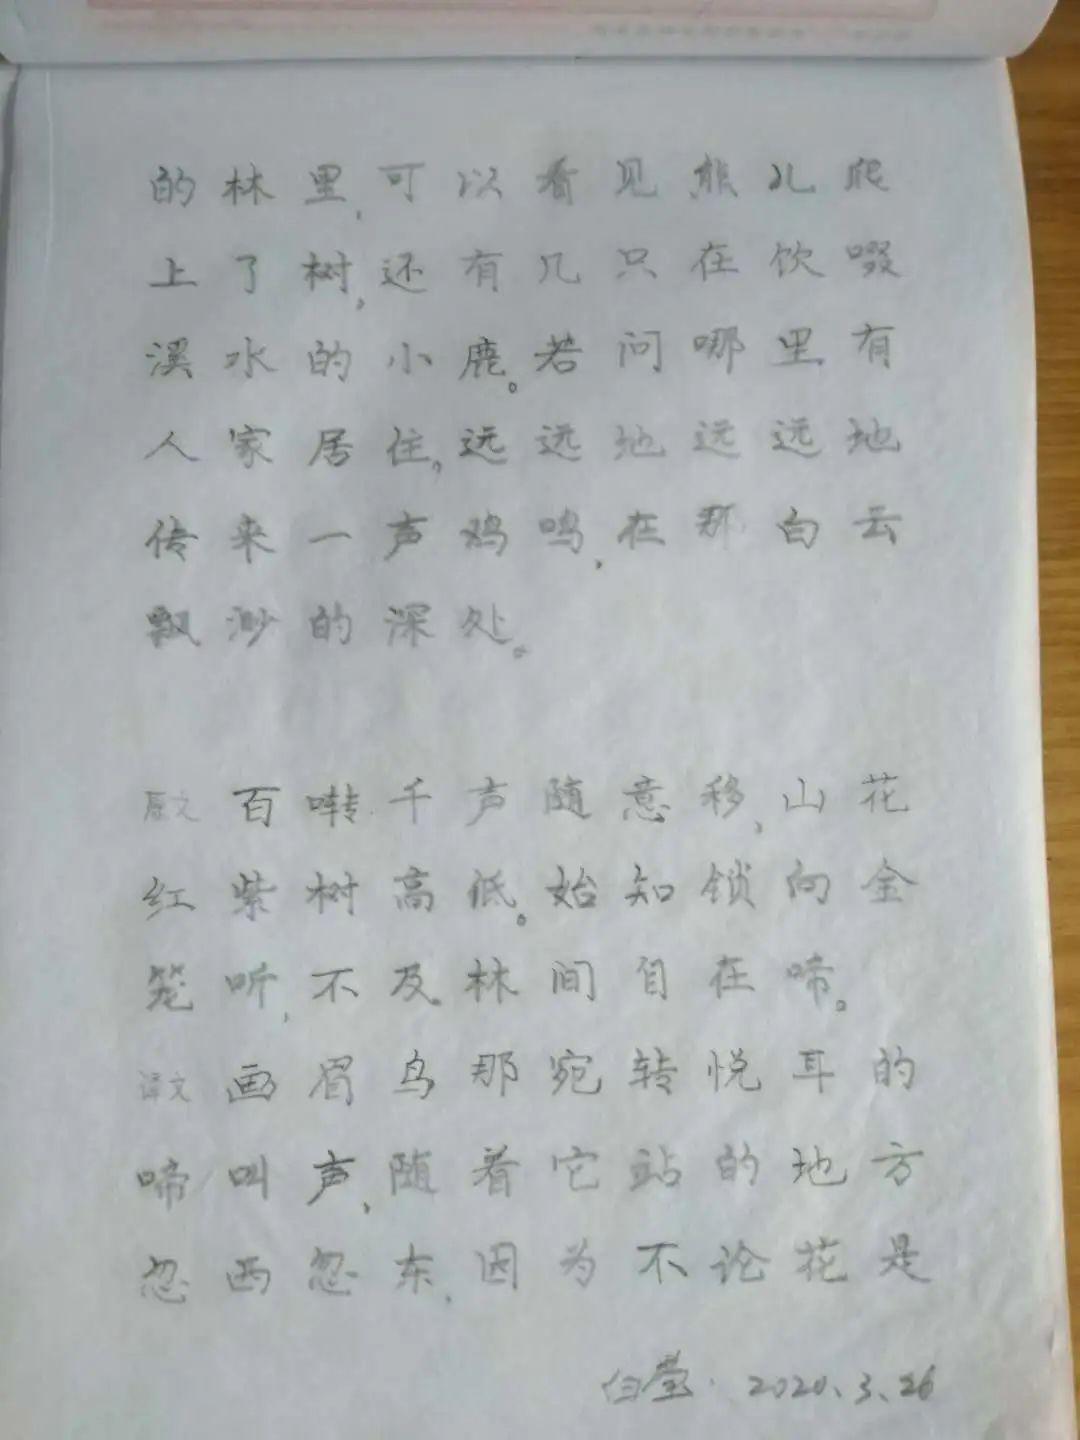 的林里,可以看见熊儿爬
上了树,还有几只在饮啜
溪水的小鹿。若问哪里有
人家居住,远远地远远地
传来一声鸡鸣,在那白云
飘渺的深处。
原文 百啭千声随意移,山花
红紫树高低。始知锁向金
笼听,不及林间自在啼。
译文 画眉鸟那宛转悦耳的
啼叫声,随着它站的地方
忽西忽东,因为不论花是
白莹. 2020.3.26